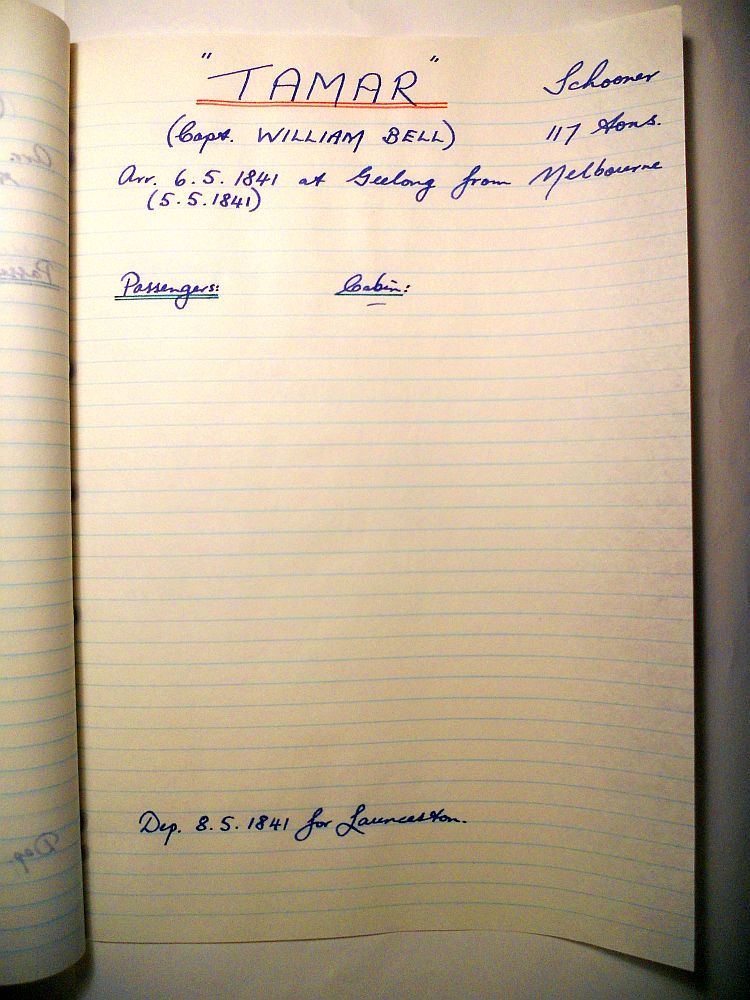 "TAMAR" Schooner
(Capt. WILLIAM BELL) 117 tons.
Arr. 6.5.1841 at Geelong from Melbourne
(5.5.1841)
Passengers: Cabin:
Dep. 8.5.1841 for Launceston.